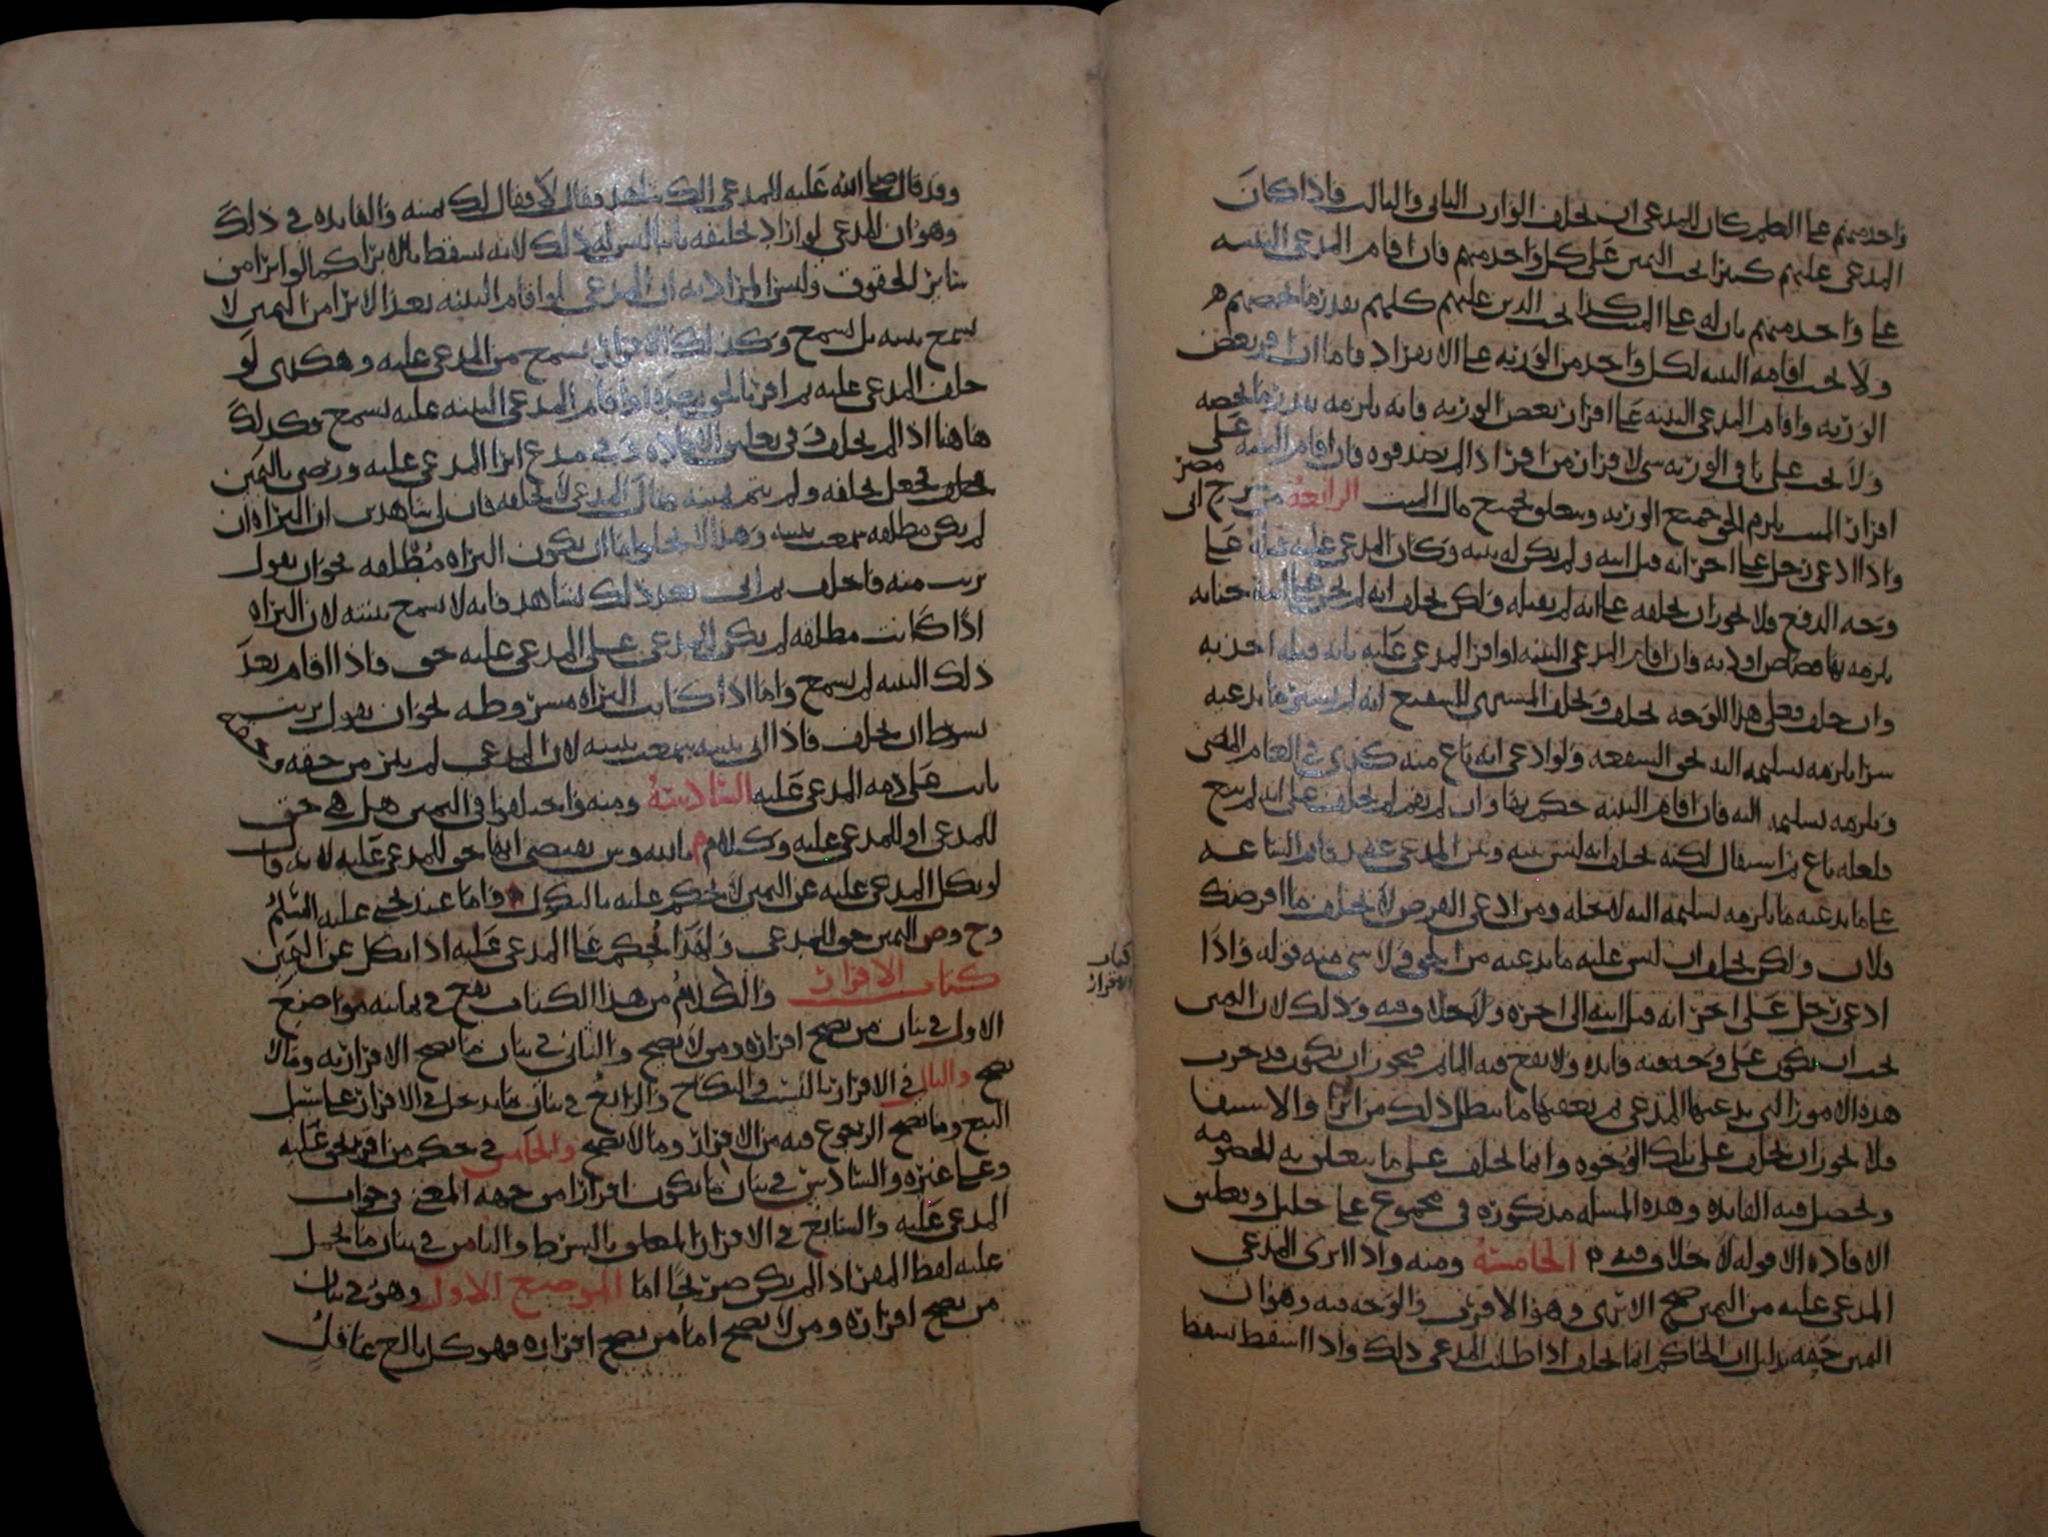 واحد منهم على العلم كان للمدعى ان يحلف الوارث الثاني والثالث فاذا كان
المدعى عليهم كبيرا يجب اليمين على كل واحد منهم فان اقام المدعي البينه
على واحد منهم بان له على الميت كذا يجب الدين عليهم كلهم بقدر ما يخصهم
ولا يجب اقامه البينه لكل واحد من الورثه على الانفراد فاما ان اقر بعض
الورثه واقام المدعي البينه على اقرار بعض الورثه فانه يلزمه بقدر ما يخصه
ولا يجب على باقي الورثه شي لاقرار من اقر اذا لم يصدقوه فان اقام البينه على
اقرار الميت يلزم الحق جميع الورثه ويتعلق بجميع مال الميت الرابعة من شرح ابي مضر
واذا ادعى رجل على اخر انه قتل ابنه ولم يكن له بينه وكان المدعى عليه قتله على
وجه الدفع فلا يجوز ان يحلفه على انه لم يقتله ولكن يحلف انه لم يجن على ابنه جنايه
يلزمه بها قصاص او ديه فان اقام المدعي البينه او اقر المدعى عليه بانه قتله اخذ به
وان حلف فعلى هذا الوجه يحلف ويحلف المشتري للشفيع انه لم يشتر ما يدعيه
شرا يلزمه تسليمه اليه بحق الشفعه ولو ادعى انه باع منه كذى في العام الماضي
ويلزمه تسليمه اليه فان اقام البينه حكم بها وان لم يقم لم يحلف على انه لم يبع
فلعله باع ثم استقال لكنه يحلف انه ليس بينه وبين المدعي عقد قائم الساعه
على ما يدعيه ما يلزمه تسليمه اليه لاجله ومن ادعى القرض لا يحلف ما اقرضك
فلان ولكن يحلف ان ليس عليه ما يدعيه من الحق ولا شي منه قوله واذا
ادعى رجل على اخر انه قتل ابنه الى اخره ولا خلاف فيه وذلك لان اليمين
يجب ان تكون على وجه فيه فائده ولا يقع فيه الماثم فيجوز ان يكون قد جرت
هذه الامور التي يدعيها المدعي ثم يعقبها ما يبطل ذلك من ابرا والاستيفا
فلا يجوز ان يحلف على تلك الوجوه وانما يحلف على ما يتعلق به الخصومه
ويحصل فيه الفائده وهذه المسله مذكوره في مجموع على خليل وتعليق
الافاده الا قوله لا خلاف فيه الخامسة ومنه واذا ابرى المدعي
المدعى عليه من اليمين صح الابرى وهو الاقرب والوجه فيه وهو ان
اليمين حقه بدليل ان الحاكم انما يحلف اذا طلب المدعي ذلك واذا اسقط سقط
وقد قال صلى الله عليه للمدعي الك شاهد فقال لا فقال لك يمينه والفايده في ذلك
وهو ان المدعي لو اراد تحليفه ثانيا ليس له ذلك لانه يسقط بالابرا كما لو ابرا من
سائر الحقوق وليس المراد به ان المدعي لو اقام البينه بعد الابرا من اليمين لا
تسمع بينته بل تسمع وكذلك الاقرار يسمع من المدعى عليه وهكذى لو
حلف المدعى عليه ثم اقر بالحق بعده او اقام المدعي البينه عليه تسمع وكذلك
هاهنا اذا لم يحلف وفي تعليق الافاده وفي مدع ابرا المدعى عليه ورضي باليمين
فجعل يحلفه ولم يتم يمينه فقال المدعي لا تحلفه فان لي شاهدين ان البراه ان
لم يكن مطلقه سمعت بينته وهذا لا يخلو اما ان تكون البراه مطلقه نحو ان يقول
بريت منه فاحلف ثم اتى بعد ذلك بشاهد فانه لا تسمع بينته لان البراه
اذا كانت مطلقه لم يكن للمدعي على المدعى عليه حق فاذا اقام بعد
ذلك البينه لم تسمع واما اذا كانت البراه مشروطه نحو ان يقول بريت
بشرط ان يحلف فاذا اتى ببينه سمعت بينته لان المدعي لم يبر من حقه وحقه
ثابت على ذمه المدعى عليه السادسة ومنه واختلفوا في اليمين هل هي حق
للمدعي او للمدعى عليه وكلام م بالله ون يقتضي انها حق للمدعى عليه لانه قا
لو نكل المدعى عليه عن اليمين لا يحكم عليه بالنكول فاما عند يحيى عليه السلم
وح وص اليمين حق المدعي ولهذا يحكم على المدعى عليه اذا نكل عن اليمين
كتاب الاقرار والكلام من هذا الكتاب يقع في ثمانيه مواضع
الاول في بيان من يصح اقراره ومن لا يصح والثاني في بيان ما يصح الاقرار به وما لا
يصح والثالث في الاقرار بالنسب والنكاح والرابع في بيان ما يدخل في الاقرار على سبيل
التبع وما يصح الرجوع فيه من الاقرار وما لا يصح والخامس في حكم من اقر بحق عليه
وعلى غيره والسادس في بيان ما يكون اقرارا من جهه المعنى في جواب
المدعى عليه والسابع في الاقرار المعلق بالشرط والثامن في بيان ما يحمل
عليه لفظ المقر اذا لم يكن صريحا اما الموضع الاول وهو في بيان
من يصح اقراره ومن لا يصح اما من يصح اقراره فهو كل بالغ عاقل
كتاب
الاقرار